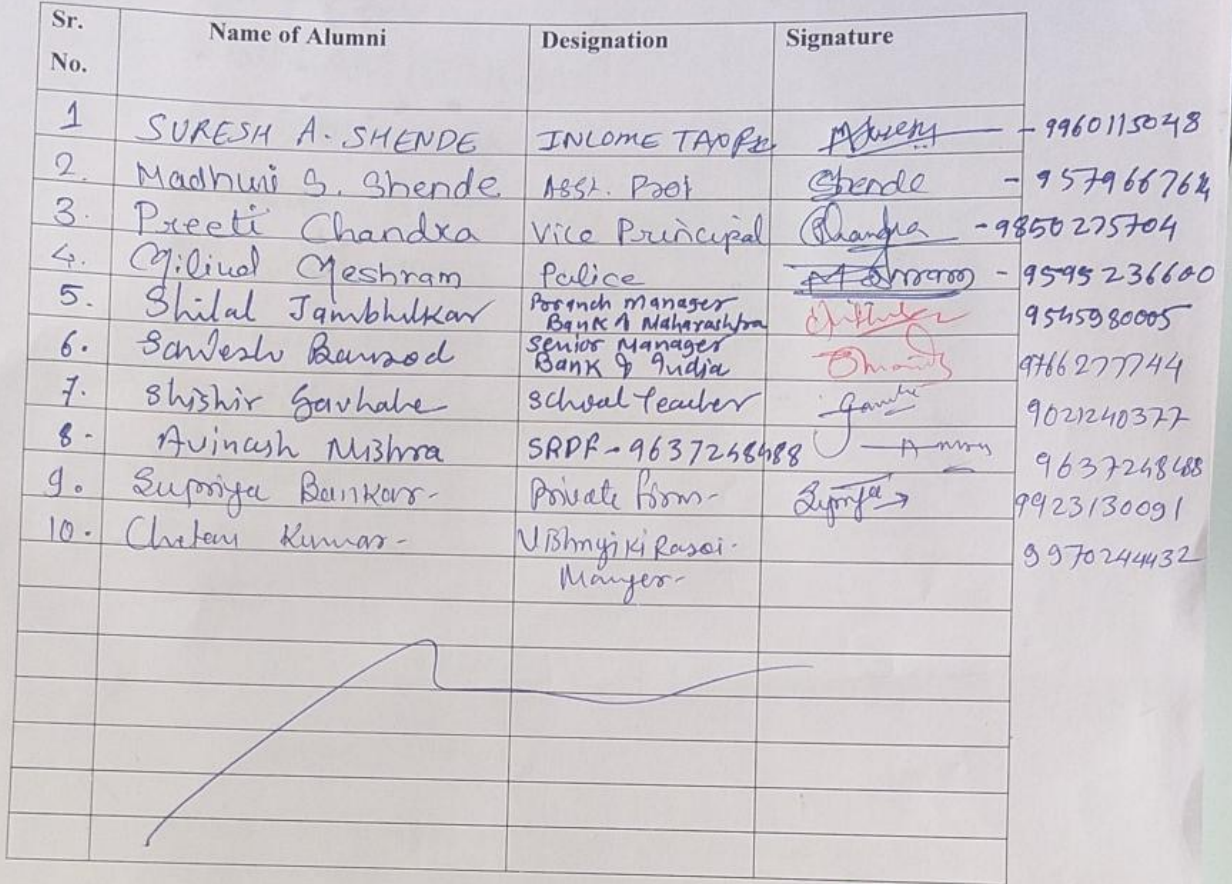 Sr. No. Name of Alumni Designation Signature
1 SURESH A. SHENDE INCOME TAX - 9960115048
2. Madhuri S. Shende Asst. Prof Shende - 957966762
3. Preeti Chandra Vice Principal Chandra - 9850275704
4. Milind Meshram Police Meshram - 9595236600
5. Shilal Jambhulkar Branch Manager
Bank of Maharashtra 9545980005
6. Sandesh Bansod Senior Manager
Bank of India 9766277744
7. Shishir Gavhale School Teacher 9021240377
8. Avinash Mishra SRPF - 9637248488 9637248488
9. Supriya Bankar - Private firm - Supriya 9923130091
10. Chetan Kumar - Rasoi. 9970244432
Manger -